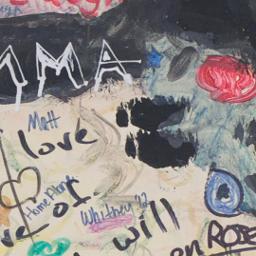 MMA
Matt
love
Home Plone
ve of
Whitney 22
will
on ROSE